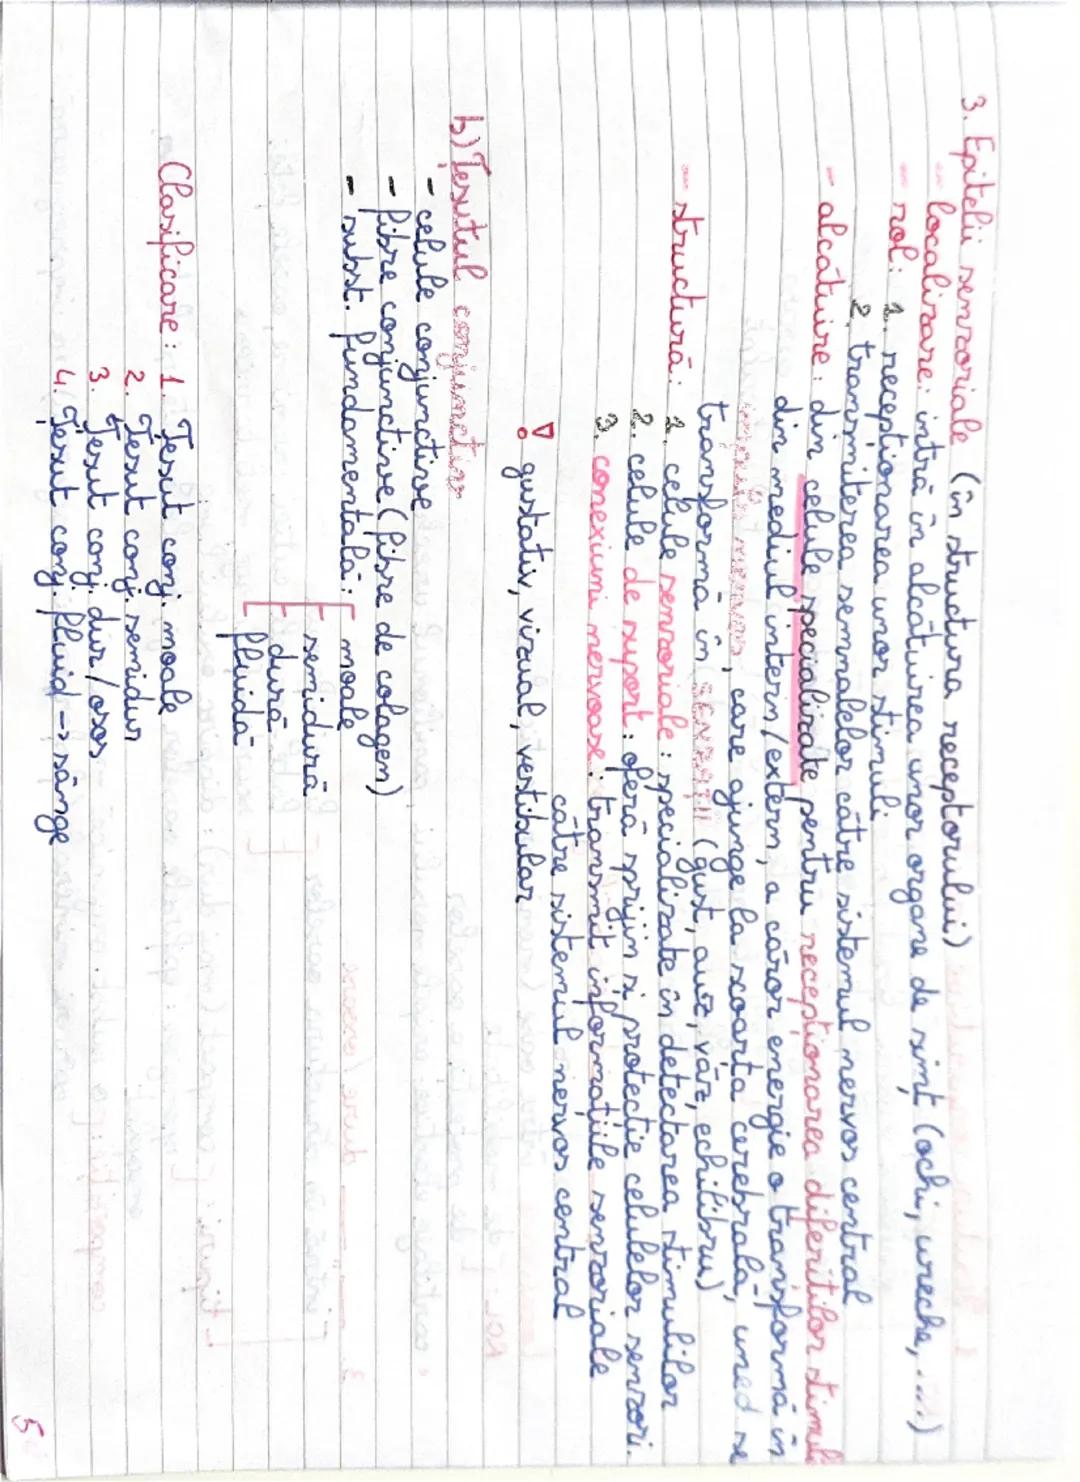 3. Epitelii senzoriale (în structura receptorului)
- localizare: intră în alcătuirea unor organe de simț (ochi, ureche, ....)
- rol: 1. recepționarea unor stimuli
2. transmiterea semnalelor către sistemul nervos central
- alcătuire: din celule specializate pentru recepționarea diferitilor stimuli
din mediul intern/extern, a căror energie o transformă în
nervos, care ajunge la scoarța cerebrală, uned se
transformă în senzații (gust, auz, văz, echilibru)
- structură: 1. celule senzoriale: specializate în detectarea stimulilor
2. celule de suport: oferă sprijin si protectie celulelor senzori.
3. conexiuni nervoase: transmit informatiile senzoriale
către sistemul nervos central
! gustativ, vizual, vestibular
b) Țesutul conjunctiv
- celule conjunctive
- fibre conjunctive (fibre de colagen)
- subst. fundamentală: moale
semidură
dură
fluidă
Clasificare: 1. Țesut conj. moale
2. Țesut conj. semidur
3. Țesut conj. dur/osos
4. Țesut conj. fluid -> sânge
5